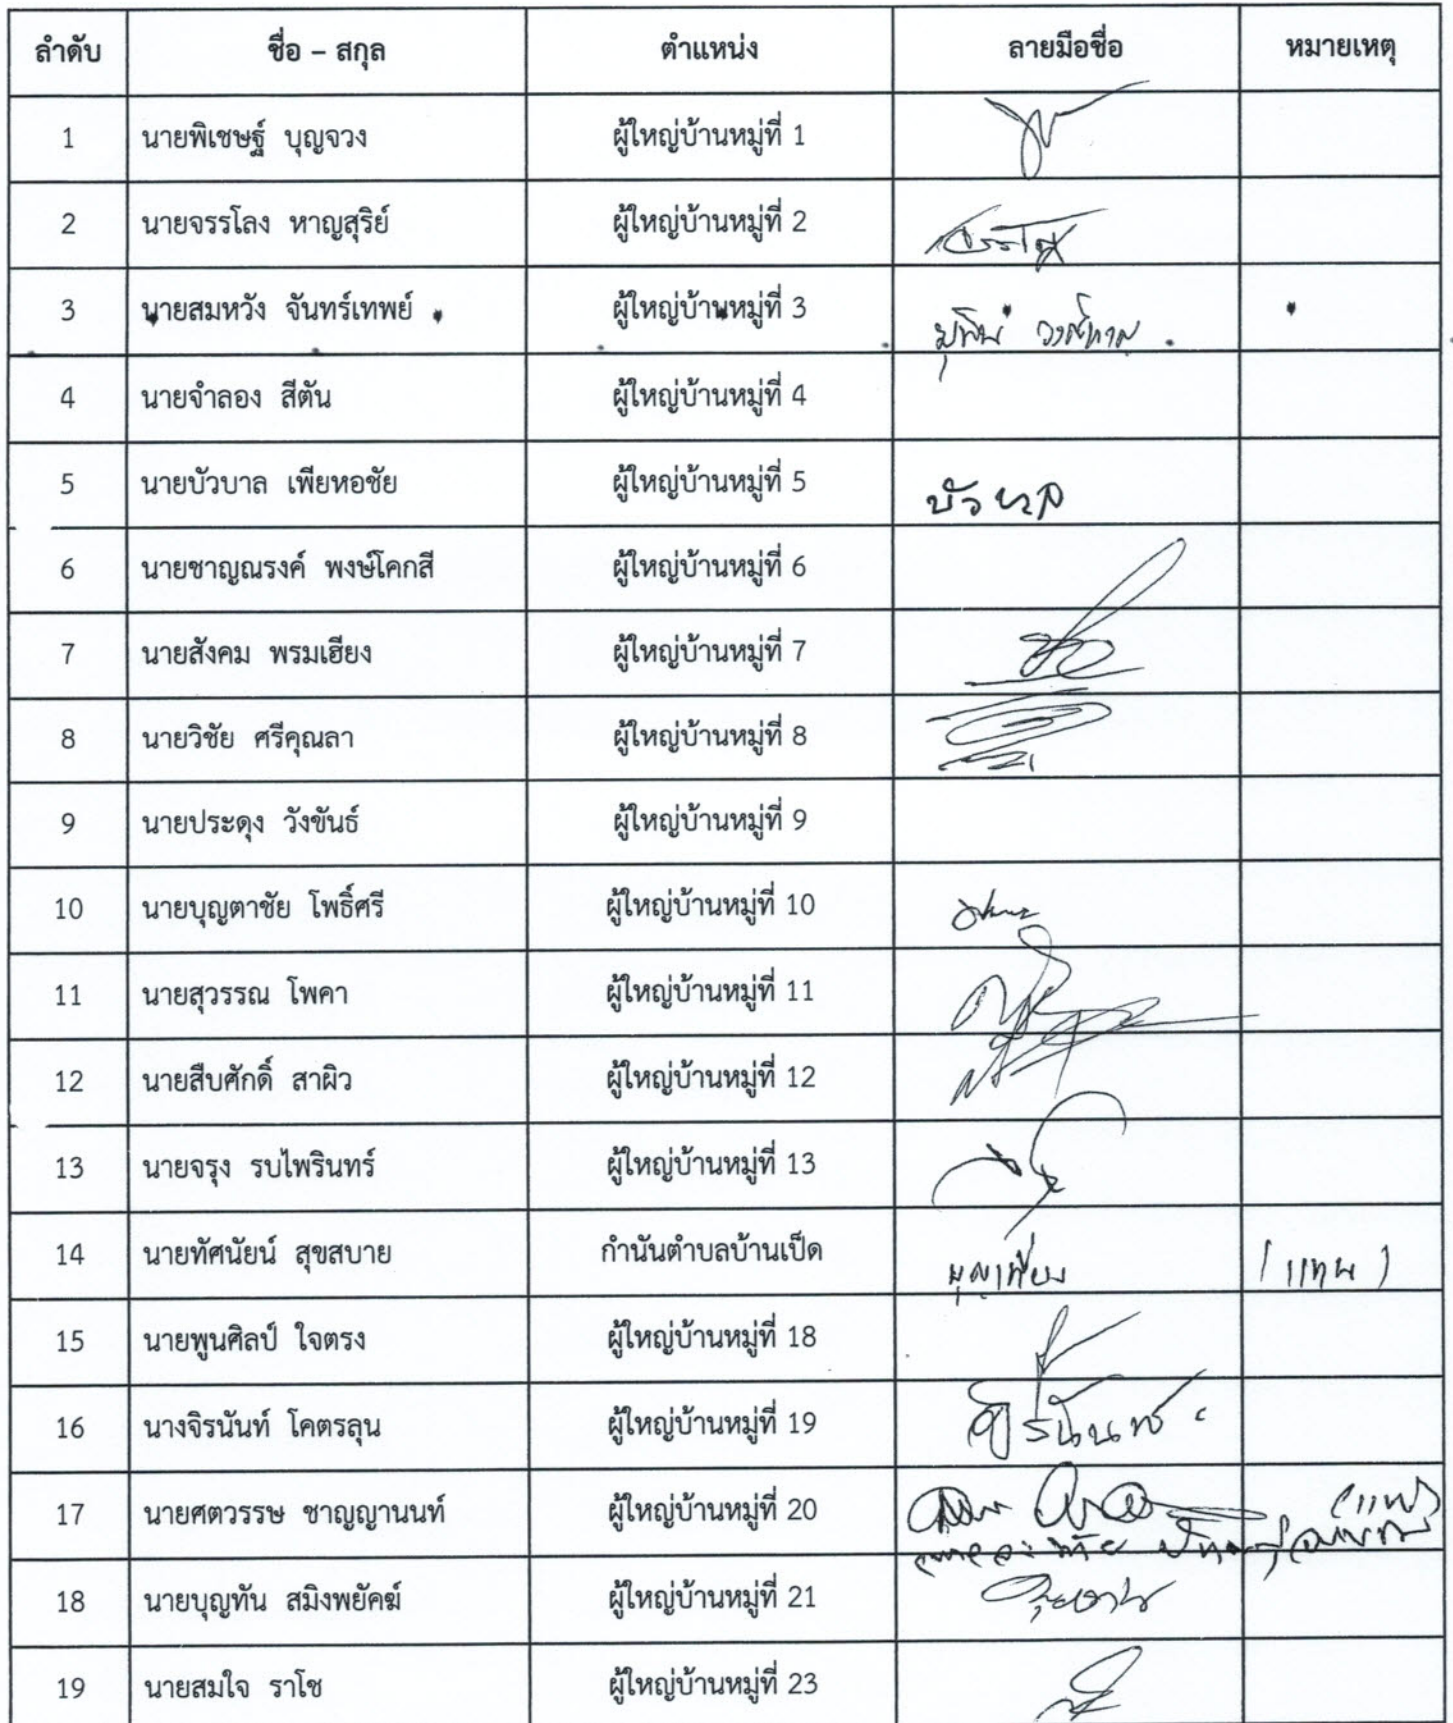 ลำดับ ชื่อ – สกุล ตำแหน่ง ลายมือชื่อ หมายเหตุ
1 นายพิเชษฐ์ บุญจวง ผู้ใหญ่บ้านหมู่ที่ 1
2 นายจรรโลง หาญสุริย์ ผู้ใหญ่บ้านหมู่ที่ 2
3 นายสมหวัง จันทร์เทพย์ ผู้ใหญ่บ้านหมู่ที่ 3
4 นายจำลอง สีตัน ผู้ใหญ่บ้านหมู่ที่ 4
5 นายบัวบาล เพียหอชัย ผู้ใหญ่บ้านหมู่ที่ 5 บัวบาล
6 นายชาญณรงค์ พงษ์โคกสี ผู้ใหญ่บ้านหมู่ที่ 6
7 นายสังคม พรมเฮียง ผู้ใหญ่บ้านหมู่ที่ 7
8 นายวิชัย ศรีคุณลา ผู้ใหญ่บ้านหมู่ที่ 8
9 นายประดุง วังขันธ์ ผู้ใหญ่บ้านหมู่ที่ 9
10 นายบุญตาชัย โพธิ์ศรี ผู้ใหญ่บ้านหมู่ที่ 10
11 นายสุวรรณ โพคา ผู้ใหญ่บ้านหมู่ที่ 11
12 นายสืบศักดิ์ สาผิว ผู้ใหญ่บ้านหมู่ที่ 12
13 นายจรุง รบไพรินทร์ ผู้ใหญ่บ้านหมู่ที่ 13
14 นายทัศนัยน์ สุขสบาย กำนันตำบลบ้านเป็ด บุญเที่ยง (แทน)
15 นายพูนศิลป์ ใจตรง ผู้ใหญ่บ้านหมู่ที่ 18
16 นางจิรนันท์ โคตรลุน ผู้ใหญ่บ้านหมู่ที่ 19 จิรนันท์
17 นายศตวรรษ ชาญญานนท์ ผู้ใหญ่บ้านหมู่ที่ 20 (แทน)
18 นายบุญทัน สมิงพยัคฆ์ ผู้ใหญ่บ้านหมู่ที่ 21
19 นายสมใจ ราโช ผู้ใหญ่บ้านหมู่ที่ 23